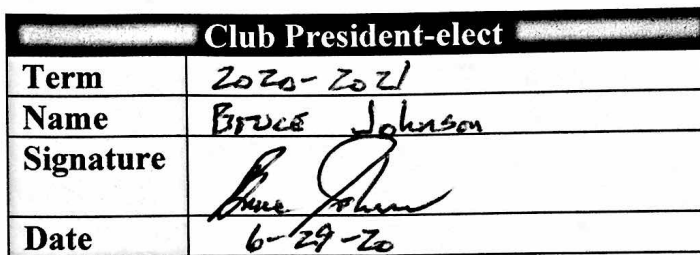 Club President-elect
Term 2020-2021
Name Bruce Johnson
Signature Bruce Johnson
Date 6-29-20